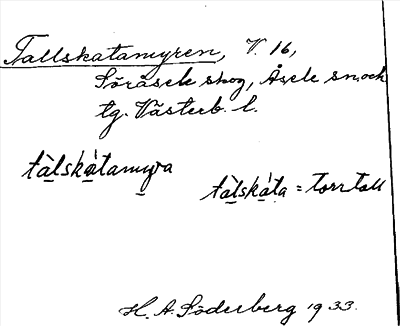 Tallskatamyren, V. 16,
Söråsele skog, Åsele sn och
tg. Västerb. l.
tàlskátamyra
tàlskáta = torrtall
H. A. Söderberg 1933.